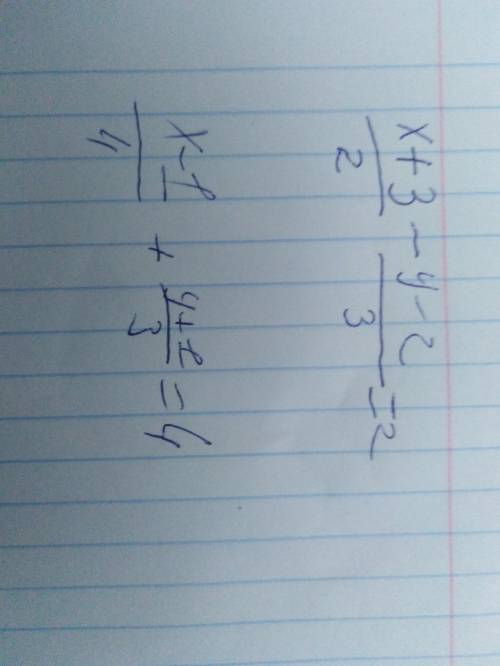 (x+3)/2 - (y-2)/3 = 2
(x-1)/4 + (y+1)/3 = 4